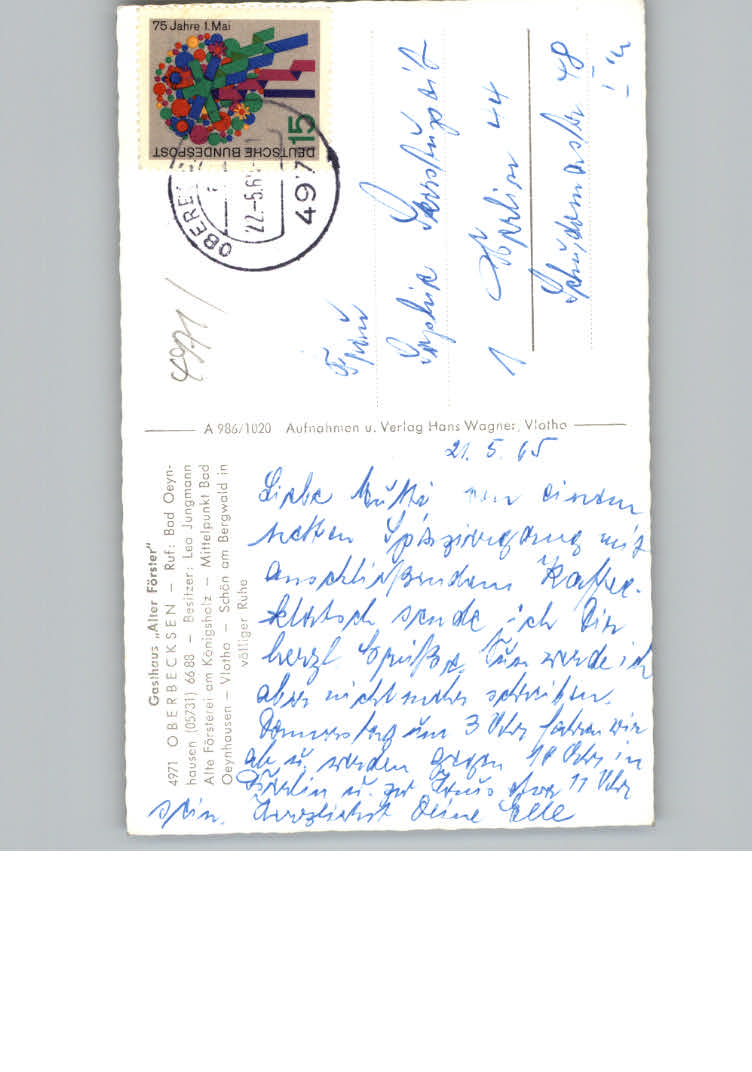 75 Jahre 1. Mai
15
DEUTSCHE BUNDESPOST
4971
22.-5.6
4971
Frau
Sophie
1 Berlin 44
48
A 986/1020 Aufnahmen u. Verlag Hans Wagner, Vlotho
Gasthaus „Alter Förster"
4971 OBERBECKSEN – Ruf: Bad Oeyn-
hausen (05731) 6688 – Besitzer: Leo Jungmann
Alte Försterei am Königsholz – Mittelpunkt Bad
Oeynhausen – Vlotho – Schön am Bergwald in
völliger Ruhe
21. 5. 65
Liebe Mutti von einem
netten Spaziergang mit
anschließendem Kaffee-
klatsch sende ich Dir
herzl. Grüße. Nun werde ich
aber nicht mehr schreiben.
Donnerstag um 3 Uhr fahren wir
ab u. werden gegen 10 Uhr in
Berlin u. zu Haus etwa 11 Uhr
sein. Herzlichst Deine Elle